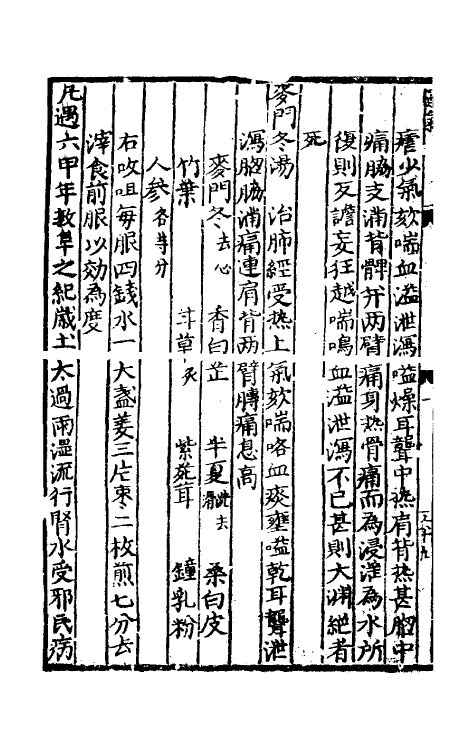 瘧少氣欬喘血溢泄瀉嗌燥耳聾中熱肩背熱甚胸中
痛脇支滿背髀并两臂痛身熱骨痛而為浸淫為水所
復則反譫妄狂越喘鳴血溢泄瀉不已甚則大淵絶者
死
麥門冬湯 治肺經受热上氣欬喘咯血痰壅嗌乾耳聾泄
瀉胸脇滿痛連肩背两臂膊痛息高
麥門冬去心 香白芷 半夏去 桑白皮
竹葉 甘草炙 紫菀茸 鐘乳粉
人參各等分
右㕮咀每服四錢水一大盞姜三片枣二枚煎七分去
滓食前服以効為度
凡遇六甲年敦阜之紀歲土太過雨湿流行腎水受邪民病